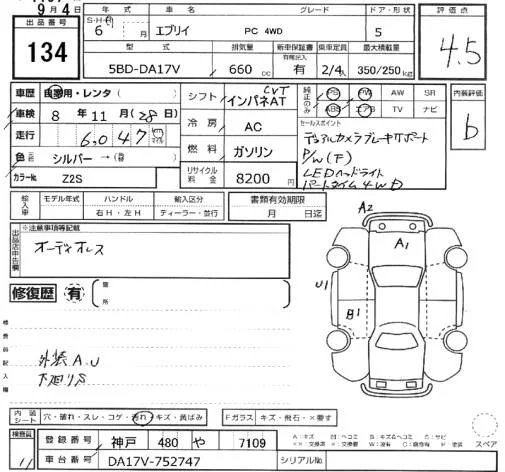 9月4日
出品番号 134
年式 車名 グレード ドア・形状 評価点
S・H・R 6年 月 エブリイ PC 4WD 5 4.5
型式 排気量 新車保証書 乗車定員 最大積載量
有無記入
5BD-DA17V 660cc 有 2/4人 350/250kg
車歴 自家用・レンタ( )
車検 8年 11月(28日)
走行 6,047 km
色 シルバー→(替 )
カラーNo. Z2S
シフト CVT インパネAT
冷房 AC
燃料 ガソリン
リサイクル料金 8200円
純正のみ PS PW AW SR
ABS エアB TV ナビ
セールスポイント
デュアルカメラブレーキサポート
P/W(F)
LEDヘッドライト
パートタイム4WD
内装評価 b
輸入車 モデル年式 ハンドル 輸入区分
年 右H・左H ディーラー・並行
書類有効期限
月 日迄
出品店申告欄 ※注意事項等記載
オーディオレス
修復歴 有 箇所
検査員記入欄
外装A,U
下廻りS
A2
A1
U1
B1
内装シート 穴・破れ・スレ・コゲ・汚れ・キズ・黄ばみ
Fガラス キズ・飛石・×要す
検査員
登録番号 神戸 480 や 7109
車台番号 DA17V-752747
シリアルNo.
A:キズ U:ヘコミ B:キズ&ヘコミ S:サビ
XX:交換済 X:要交換 W:波有 C:腐食有 P:塗装
スペア